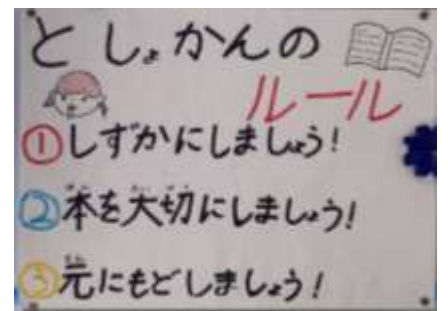 としょかんの
ルール
①しずかにしましょう!
②本を大切にしましょう!
③元にもどしましょう!